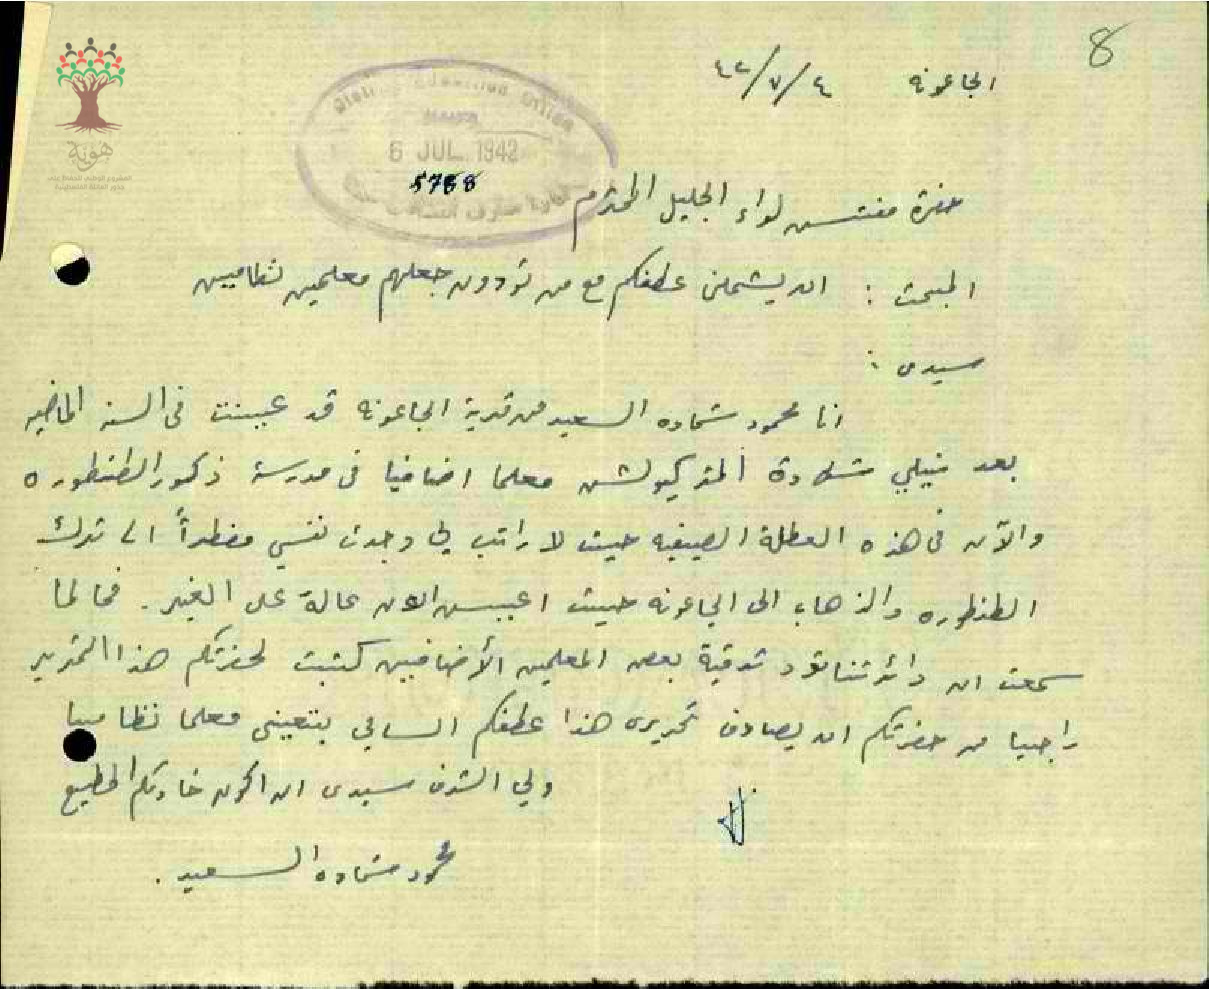 8
الجاعونه ٤/٧/٤٢
District Education Office
HAIFA
6 JUL 1942
5788
حضرة مفتش لواء الجليل المحترم
المبحث : ان يشملني عطفكم مع من تودون جعلهم معلمين نظاميين
سيدي :
انا محمود شحاده السعيد من قرية الجاعونه قد عينت في السنه الماضيه
بعد نيلي شهادة المتركيولشن معلما اضافيا في مدرسة ذكور الطنطوره
والآن في هذه العطلة الصيفيه حيث لا راتب لي وجدت نفسي مضطراً الى ترك
الطنطوره والذهاب الى الجاعونه حيث اعيش الان عالة على الغير . فحالما
سمعت ان دائرتنا تود ترقية بعض المعلمين الأضافيين كتبت لحضرتكم هذا التحرير
راجيا من حضرتكم ان يصادف تحريري هذا عطفكم السامي بتعييني معلما نظاميا
ولي الشرف سيدي ان اكون خادمكم المطيع
محمود شحاده السعيد .
هوية